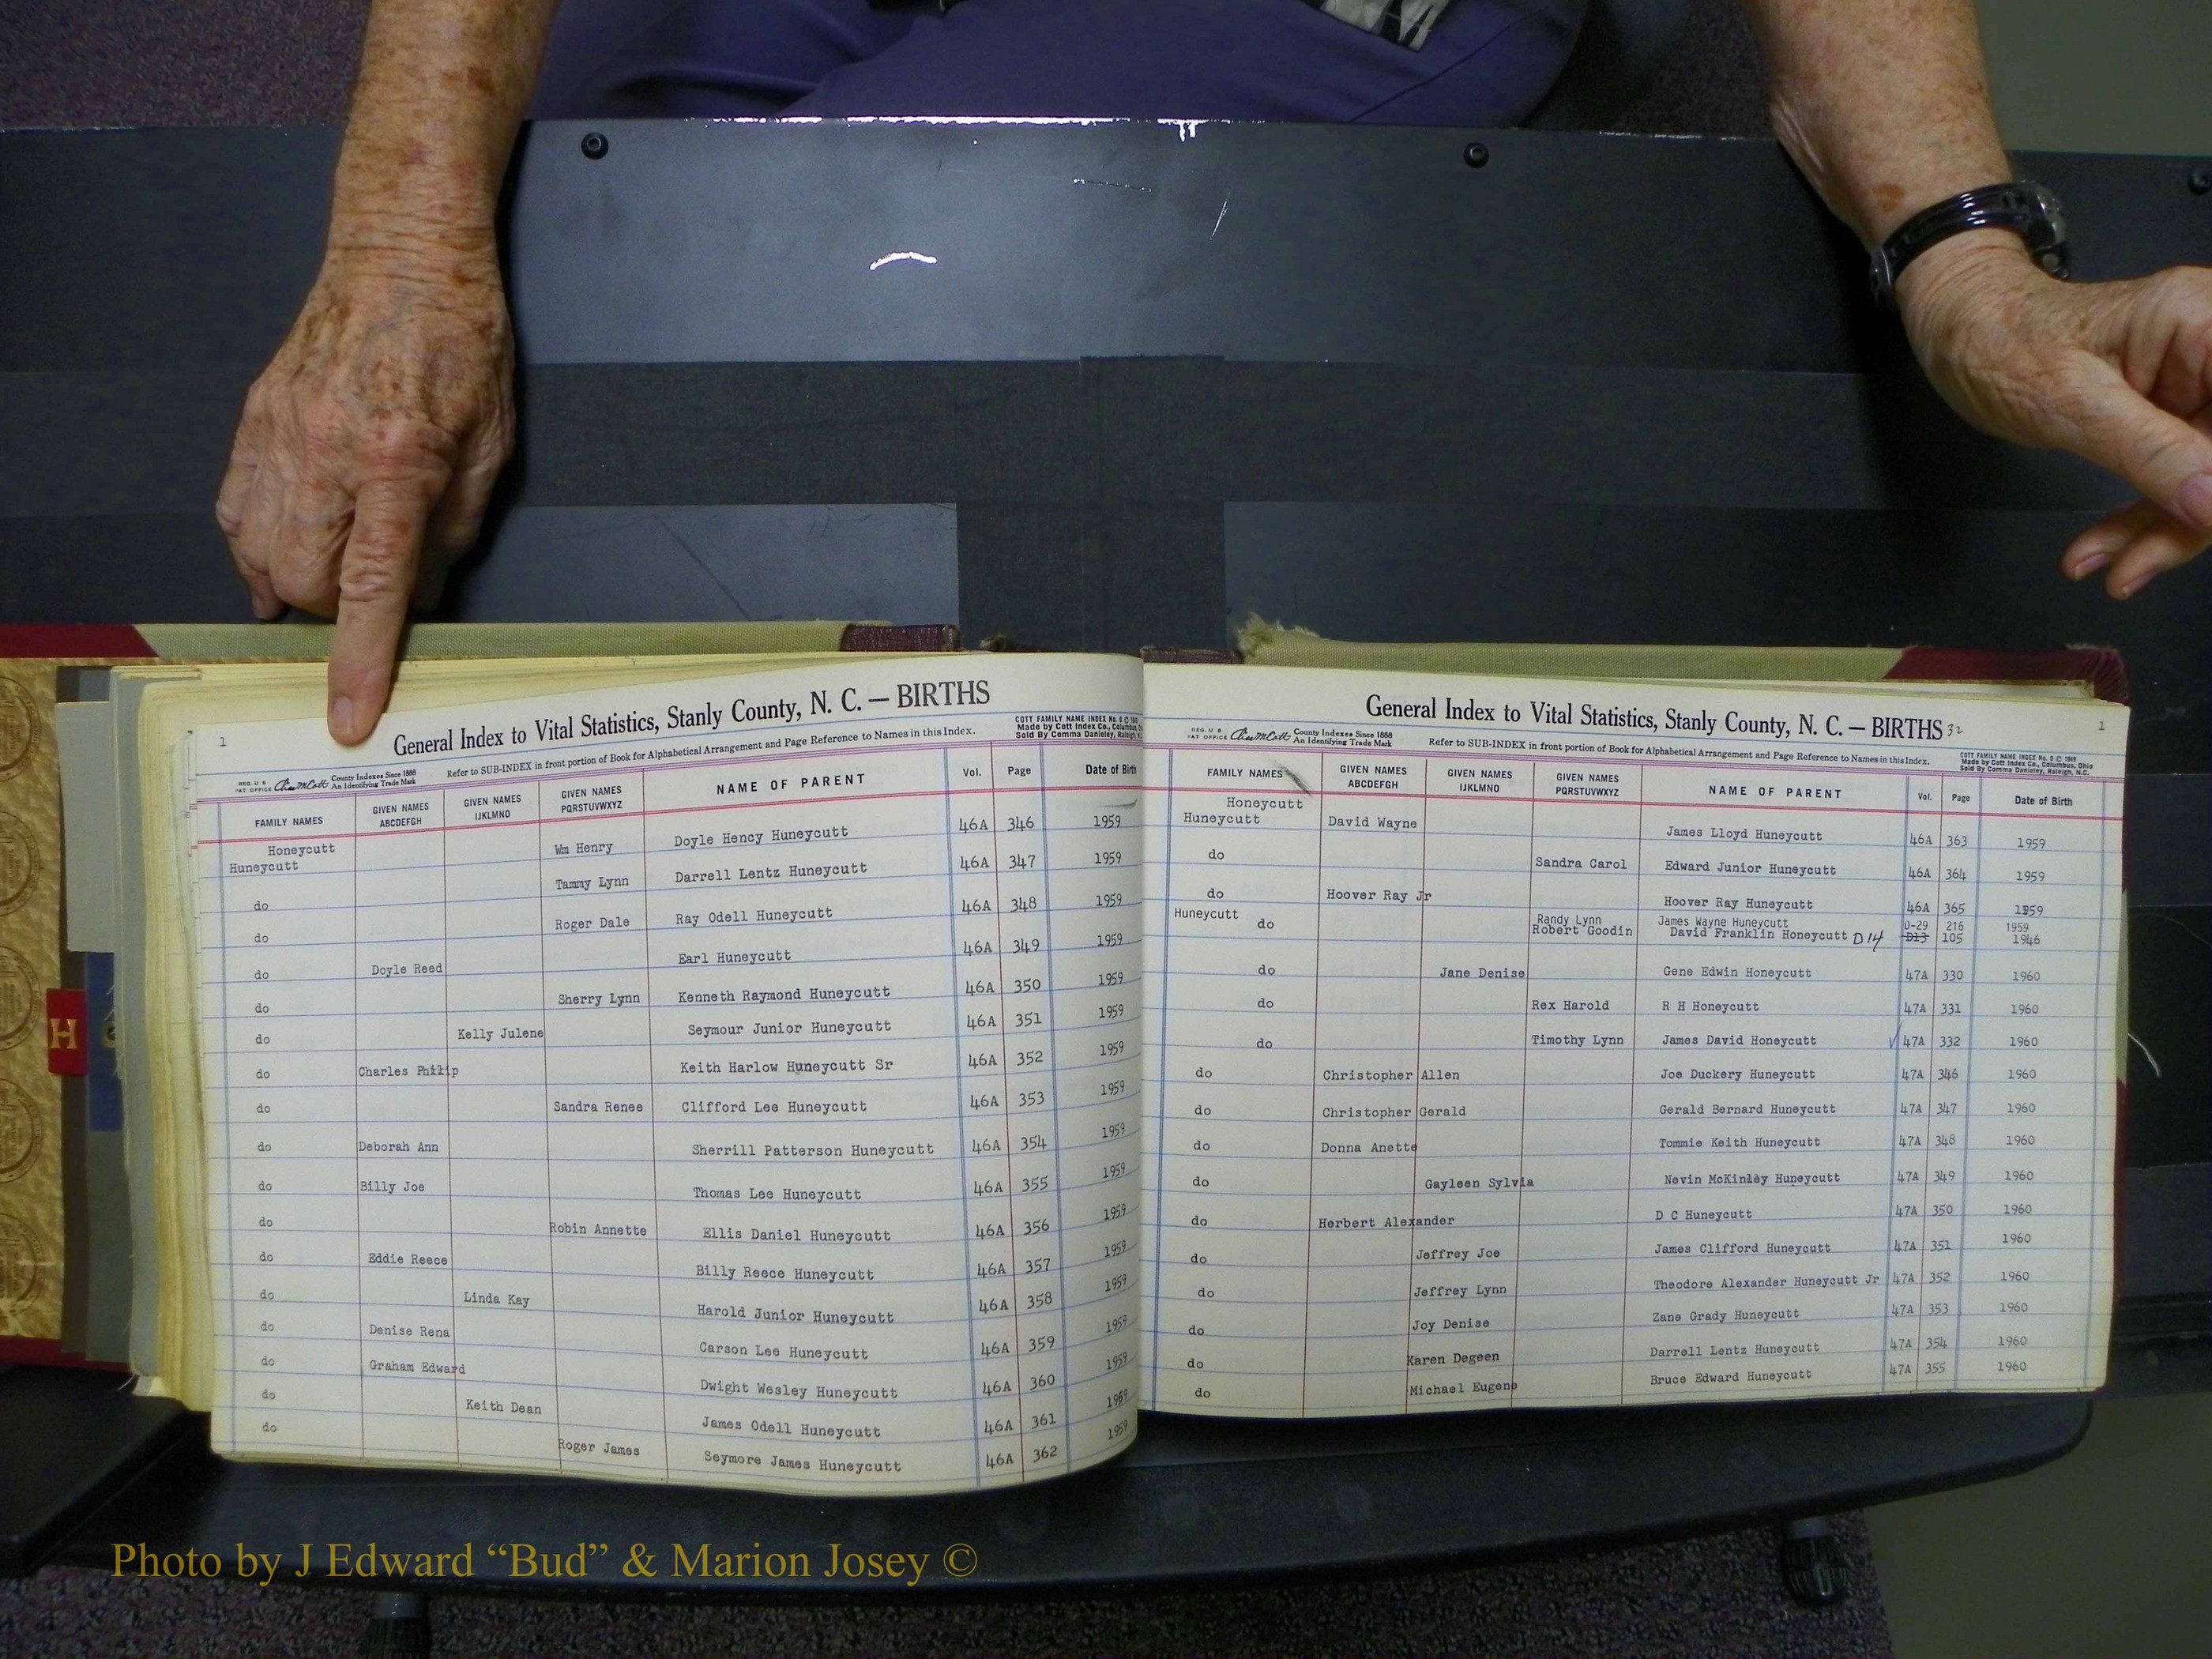 1
General Index to Vital Statistics, Stanly County, N. C. — BIRTHS
COTT FAMILY NAME INDEX No. 5 © 1949
Made by Cott Index Co., Columbus,
Sold By Comma Danieley, Raleigh,
REG. U S
PAT OFFICE County Indexes Since 1888
An Identifying Trade Mark
Refer to SUB-INDEX in front portion of Book for Alphabetical Arrangement and Page Reference to Names in this Index.
FAMILY NAMES GIVEN NAMES ABCDEFGH GIVEN NAMES IJKLMNO GIVEN NAMES PQRSTUVWXYZ NAME OF PARENT Vol. Page Date of Birth
Honeycutt
Huneycutt Wm Henry Doyle Hency Huneycutt 46A 346 1959
do Tammy Lynn Darrell Lentz Huneycutt 46A 347 1959
do Roger Dale Ray Odell Huneycutt 46A 348 1959
do Doyle Reed Earl Huneycutt 46A 349 1959
do Sherry Lynn Kenneth Raymond Huneycutt 46A 350 1959
do Kelly Julene Seymour Junior Huneycutt 46A 351 1959
do Charles Philip Keith Harlow Huneycutt Sr 46A 352 1959
do Sandra Renee Clifford Lee Huneycutt 46A 353 1959
do Deborah Ann Sherrill Patterson Huneycutt 46A 354 1959
do Billy Joe Thomas Lee Huneycutt 46A 355 1959
do Robin Annette Ellis Daniel Huneycutt 46A 356 1959
do Eddie Reece Billy Reece Huneycutt 46A 357 1959
do Linda Kay Harold Junior Huneycutt 46A 358 1959
do Denise Rena Carson Lee Huneycutt 46A 359 1959
do Graham Edward Dwight Wesley Huneycutt 46A 360 1959
do Keith Dean James Odell Huneycutt 46A 361 1959
do Roger James Seymore James Huneycutt 46A 362 1959
General Index to Vital Statistics, Stanly County, N. C. — BIRTHS 32
1
REG. U S
PAT OFFICE County Indexes Since 1888
An Identifying Trade Mark
Refer to SUB-INDEX in front portion of Book for Alphabetical Arrangement and Page Reference to Names in this Index.
COTT FAMILY NAME INDEX No. 5 © 1949
Made by Cott Index Co., Columbus, Ohio
Sold By Comma Danieley, Raleigh, N.C.
FAMILY NAMES GIVEN NAMES ABCDEFGH GIVEN NAMES IJKLMNO GIVEN NAMES PQRSTUVWXYZ NAME OF PARENT Vol. Page Date of Birth
Honeycutt
Huneycutt David Wayne James Lloyd Huneycutt 46A 363 1959
do Sandra Carol Edward Junior Huneycutt 46A 364 1959
do Hoover Ray Jr Hoover Ray Huneycutt 46A 365 1959
Huneycutt Randy Lynn James Wayne Huneycutt D-29 216 1959
do Robert Goodin David Franklin Honeycutt D14 D13 105 1946
do Jane Denise Gene Edwin Honeycutt 47A 330 1960
do Rex Harold R H Honeycutt 47A 331 1960
do Timothy Lynn James David Honeycutt ✓ 47A 332 1960
do Christopher Allen Joe Duckery Huneycutt 47A 346 1960
do Christopher Gerald Gerald Bernard Huneycutt 47A 347 1960
do Donna Anette Tommie Keith Huneycutt 47A 348 1960
do Gayleen Sylvia Nevin McKinley Huneycutt 47A 349 1960
do Herbert Alexander D C Huneycutt 47A 350 1960
do Jeffrey Joe James Clifford Huneycutt 47A 351 1960
do Jeffrey Lynn Theodore Alexander Huneycutt Jr 47A 352 1960
do Joy Denise Zane Grady Huneycutt 47A 353 1960
do Karen Degeen Darrell Lentz Huneycutt 47A 354 1960
do Michael Eugene Bruce Edward Huneycutt 47A 355 1960
H
Photo by J Edward “Bud” & Marion Josey ©